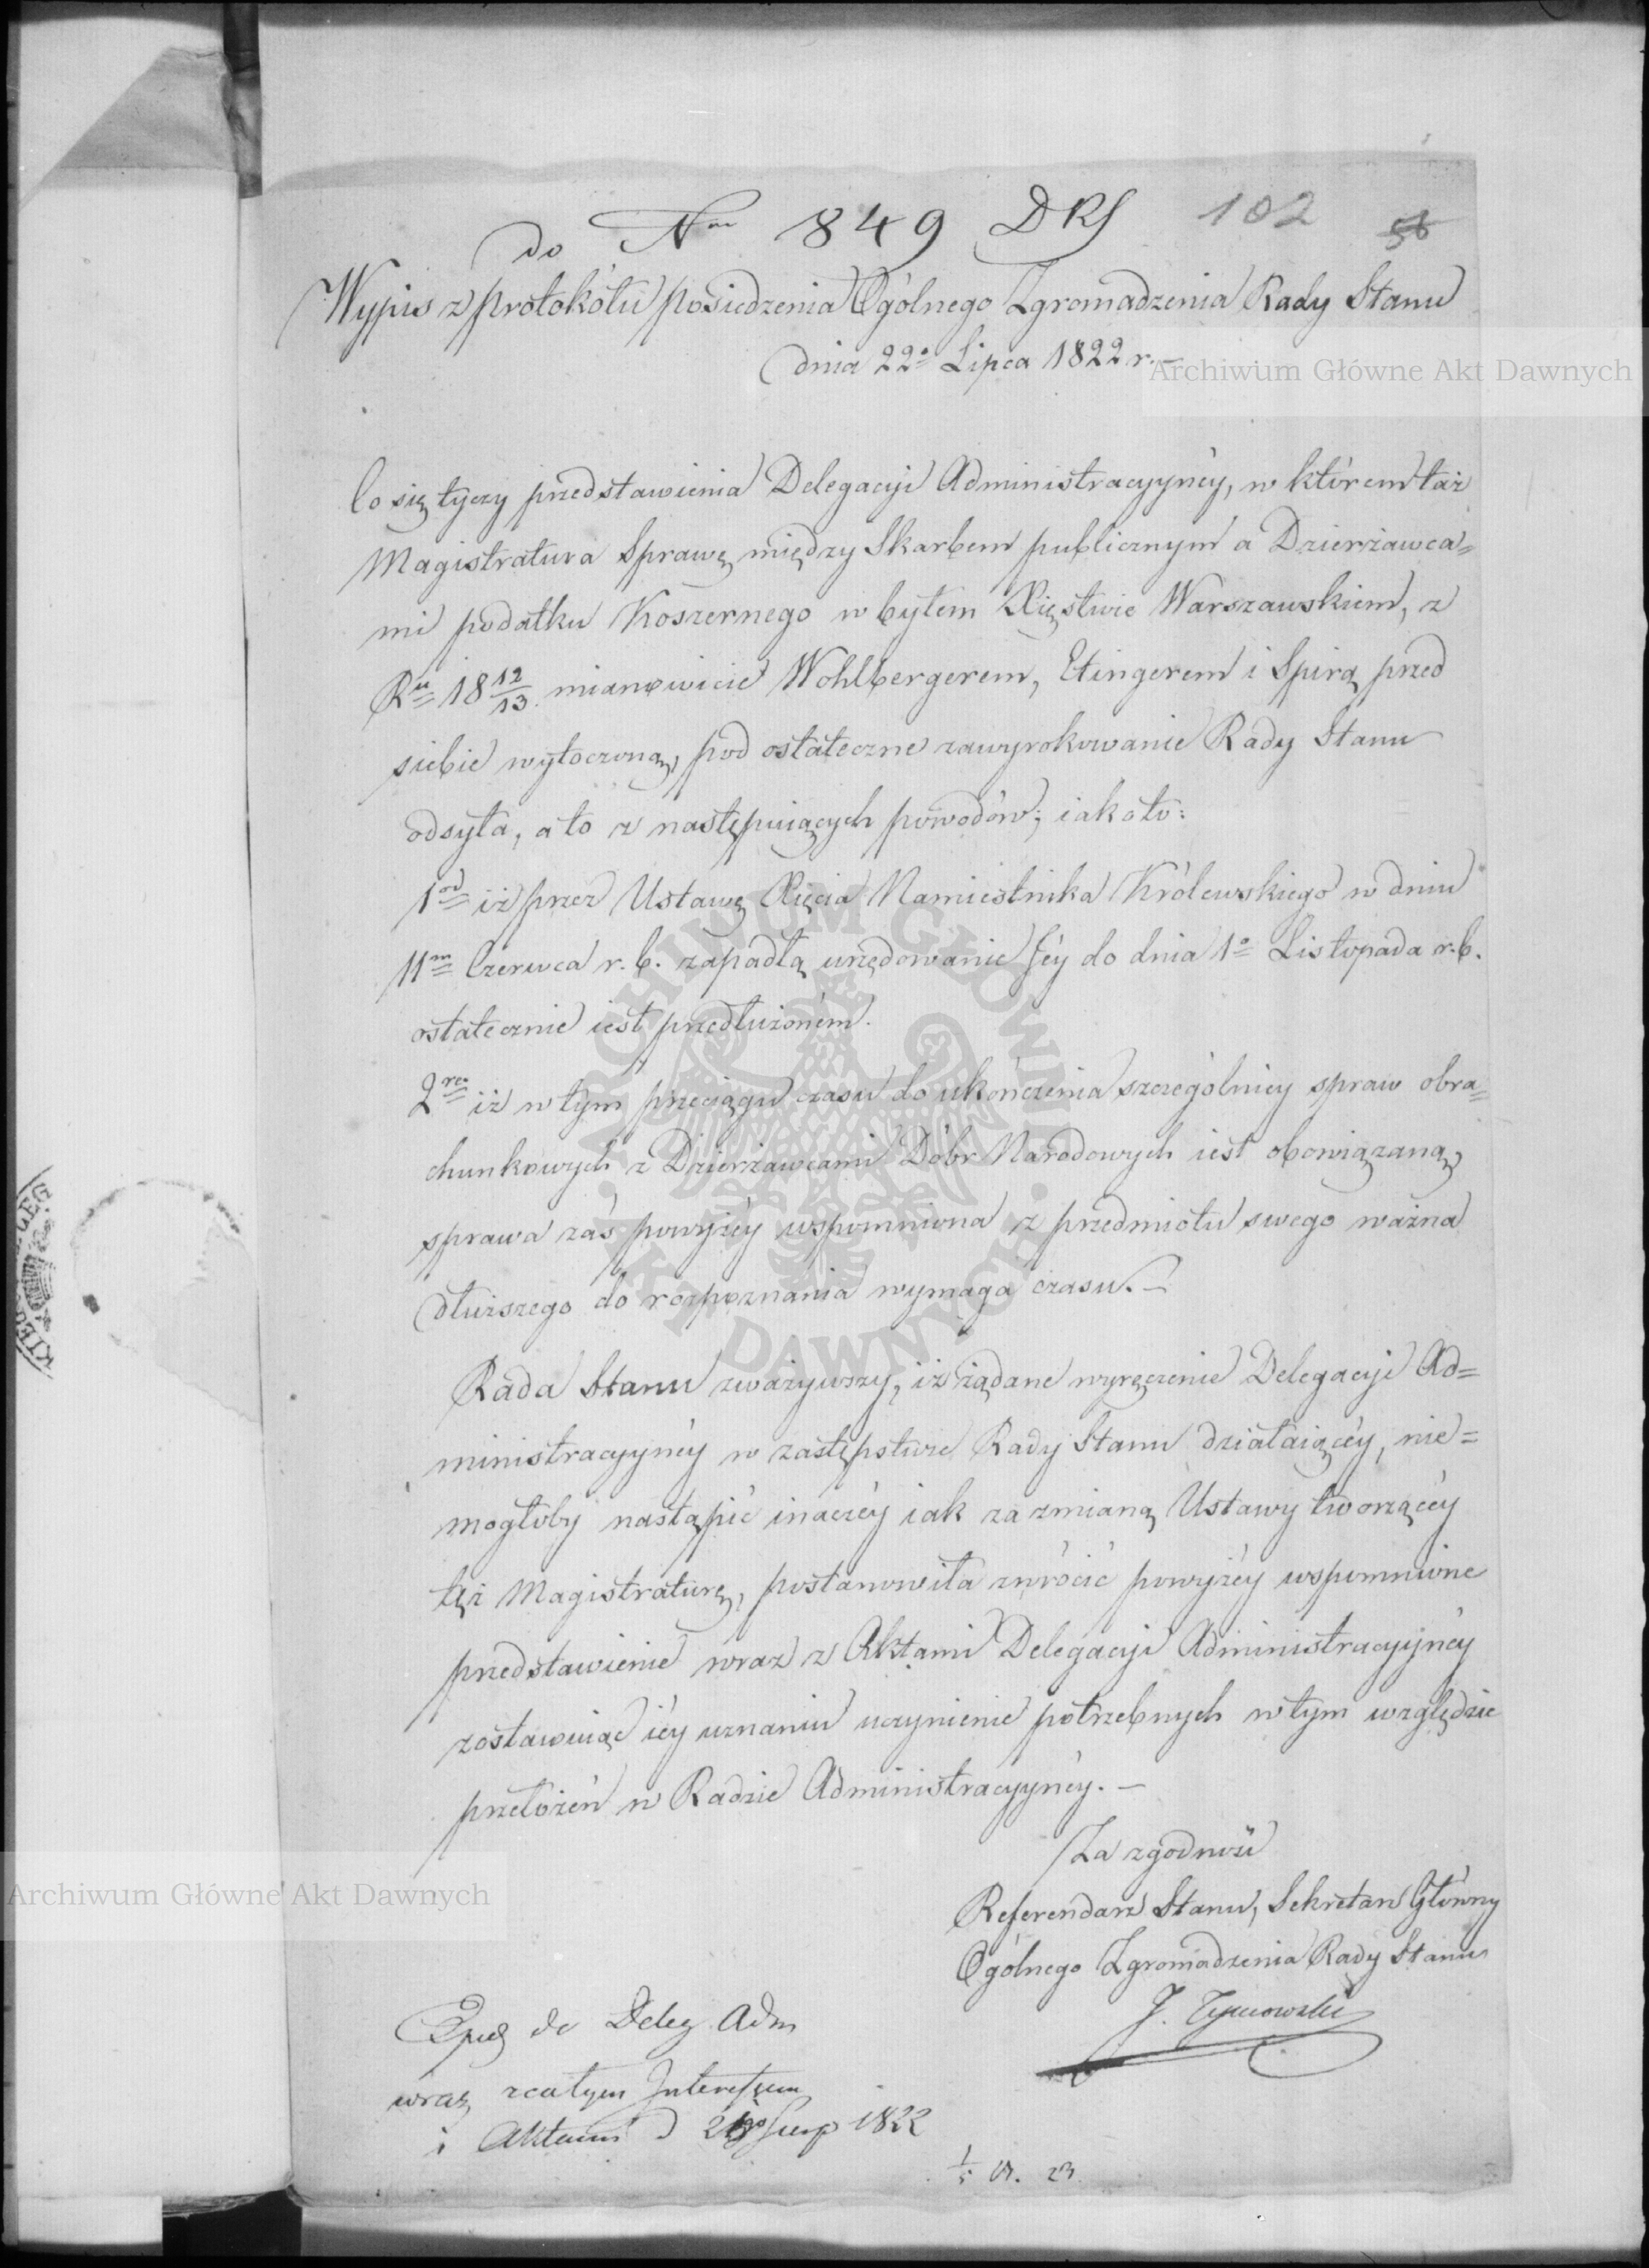 do Nro 849 DRS 102 58
Wypis z protokółu posiedzenia Ogólnego Zgromadzenia Rady Stanu
dnia 22o Lipca 1822 r.
Archiwum Główne Akt Dawnych
Co się tyczy przedstawienia Delegacyi Administracyyney, w którem taż
Magistratura Sprawę między Skarbem publicznym a Dzierżawca=
mi podatku Koszernego w byłem Xięstwie Warszawskiem, z
Ru 18 12/13. mianowicie Wohlbergerem, Etingerem i Spirą przed
siebie wytoczoną, pod ostateczne zawyrokowanie Rady Stanu
odsyła, a to z następuiących powodów; iako to:
1od iż przez Ustawę Xięcia Namiestnika Królewskiego w dniu
11m Czerwca r. b. zapadłą urzędowanie Jéy do dnia 1o Listopada r. b.
ostatecznie iest przedłużoném.
2re iż w tym przeciągu czasu do ukończenia szczególniey spraw obra=
chunkowych z Dzierżawcami Dóbr Narodowych iest obowiązaną,
sprawa zaś powyżéy wspomniona z przedmiotu swego ważna
dłuższego do rozpoznania wymaga czasu. —
Rada Stanu zważywszy, iż żądane wyręczenie Delegacyi Ad=
ministracyynéy w zastępstwie Rady Stanu działaiącéy, nie=
mogłoby nastąpić inaczéy iak za zmianą Ustawy tworzącéy
tęż Magistraturę, postanowiła zwrócić powyżéy wspomnione
przedstawienie wraz z Aktami Delegacyi Administracyynéy
zostawuiąc iéy uznaniu uczynienie potrzebnych w tym względzie
przełożeń w Radzie Administracyynéy. —
Za zgodność
Referendarz Stanu, Sekretarz Główny
Ogólnego Zgromadzenia Rady Stanu
J. Tymowski
Archiwum Główne Akt Dawnych
do Deleg Adm
wraz z całym Interessem
i Aktami d 1822
ARCHIWUM GŁÓWNE AKT DAWNYCH